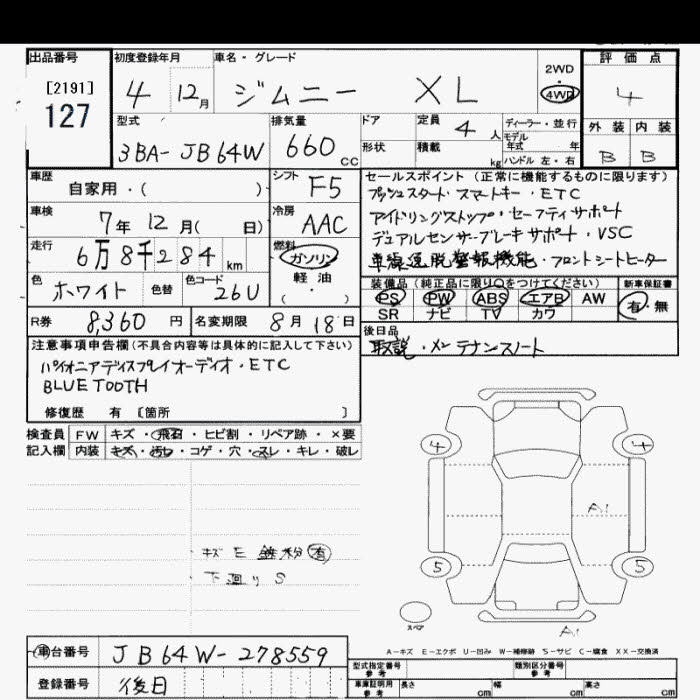 出品番号 初度登録年月 車名・グレード 評価点
[2191]
127
4 12月 ジムニー XL 2WD 4WD 4
型式 排気量 ドア 定員 4人 ディーラー・並行 外装 内装
3BA-JB64W 660cc 形状 積載 kg モデル年式 年 ハンドル 左・右 B B
車歴 自家用・( ) シフト F5
車検 7年12月( 日) 冷房 AAC
走行 6万8千284km 燃料 ガソリン
軽油
・( )
色 ホワイト 色替 色コード 26U
R券 8,360円 名変期限 8月18日
セールスポイント(正常に機能するものに限ります)
プッシュスタート・スマートキー・ETC
アイドリングストップ・セーフティサポート
デュアルセンサーブレーキサポート・VSC
車線逸脱警報機能・フロントシートヒーター
装備品(純正品に限り○をつけてください) 新車保証書
PS PW ABS エアB AW 有・無
SR ナビ TV カワ
後日品
取説・メンテナンスノート
注意事項申告欄(不具合内容等は具体的に記入して下さい)
パイオニアディスプレイオーディオ・ETC
BLUETOOTH
修復歴 有 〔箇所 〕
検査員 FW キズ・飛石・ヒビ割・リペア跡・×要
記入欄 内装 キズ・汚レ・コゲ・穴・スレ・キレ・破レ
4 4
A1
・キズ E 鉄粉 有
・下廻り S
5 5
スペア
A1
A-キズ E-エクボ U-凹み W-補修跡 S-サビ C-腐食 XX-交換済
車台番号 JB64W-278559
登録番号 後日
型式指定番号 参考 類別区分番号 参考
車庫証明用 参考 長さ cm 幅 cm 高さ cm